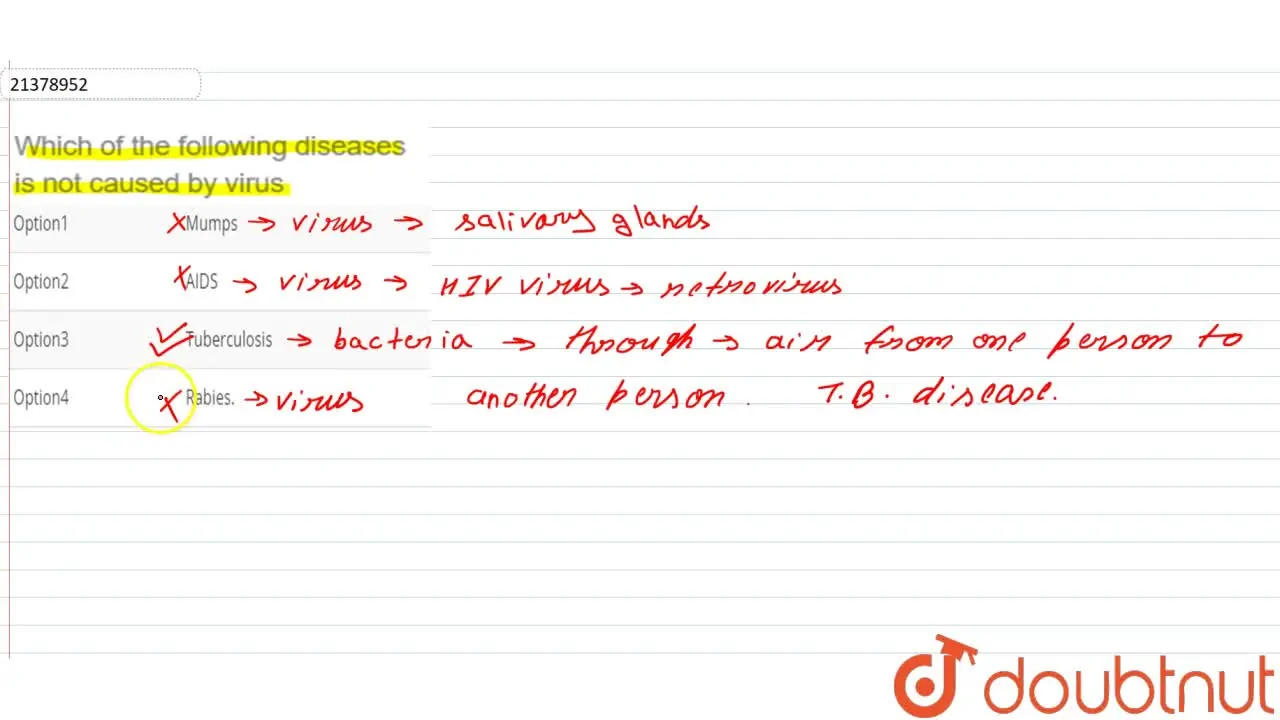 21378952
Which of the following diseases
is not caused by virus
Option1 x Mumps → virus → salivary glands
Option2 x AIDS → virus → HIV virus → retrovirus
Option3 ✓ Tuberculosis → bacteria → through → air from one person to
Option4 x Rabies. → virus another person. T.B. disease.
doubtnut